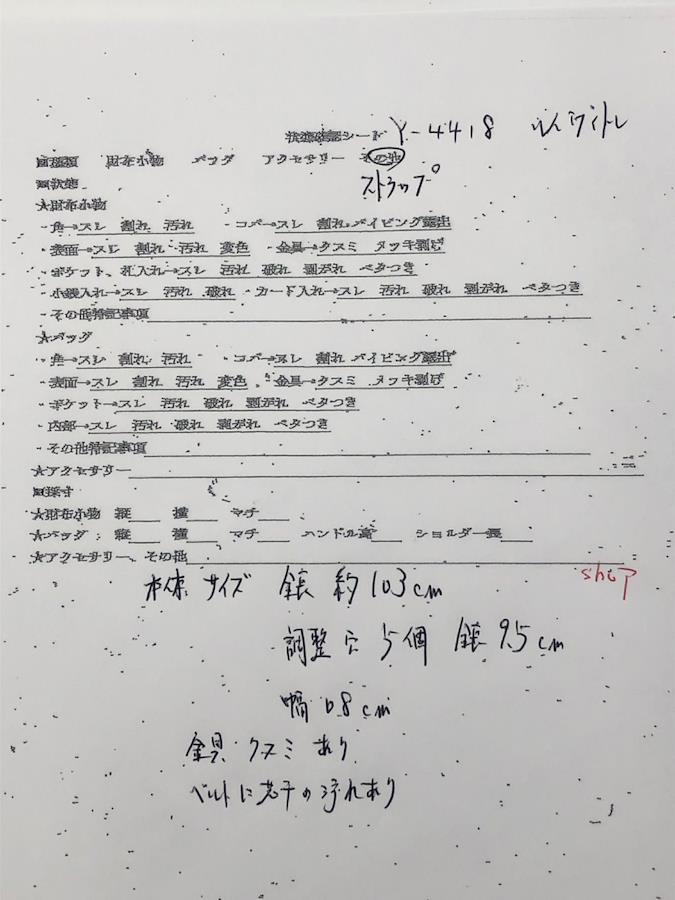 状態確認シート Y-4418 ルイヴィトン
□種類 財布小物 バッグ アクセサリー その他
□状態 ストラップ
★財布小物
・角→スレ 割れ 汚れ ・コバ→スレ 割れ パイピング露出
・表面→スレ 割れ 汚れ 変色 ・金具→クスミ メッキ剥げ
・ポケット、札入れ→スレ 汚れ 破れ 剥がれ ベタつき
・小銭入れ→スレ 汚れ 破れ ・カード入れ→スレ 汚れ 破れ 剥がれ ベタつき
・その他特記事項
★バッグ
・角→スレ 割れ 汚れ ・コバ→スレ 割れ パイピング露出
・表面→スレ 割れ 汚れ 変色 ・金具→クスミ メッキ剥げ
・ポケット→スレ 汚れ 破れ 剥がれ ベタつき
・内部→スレ 汚れ 破れ 剥がれ ベタつき
・その他特記事項
★アクセサリー
□採寸
★財布小物 縦 横 マチ
★バッグ 縦 横 マチ ハンドル高 ショルダー長
★アクセサリー、その他
shop
本体サイズ 約103cm
調整穴 5個 95cm
幅 08cm
金具 クスミあり
ベルトに若干の汚れあり